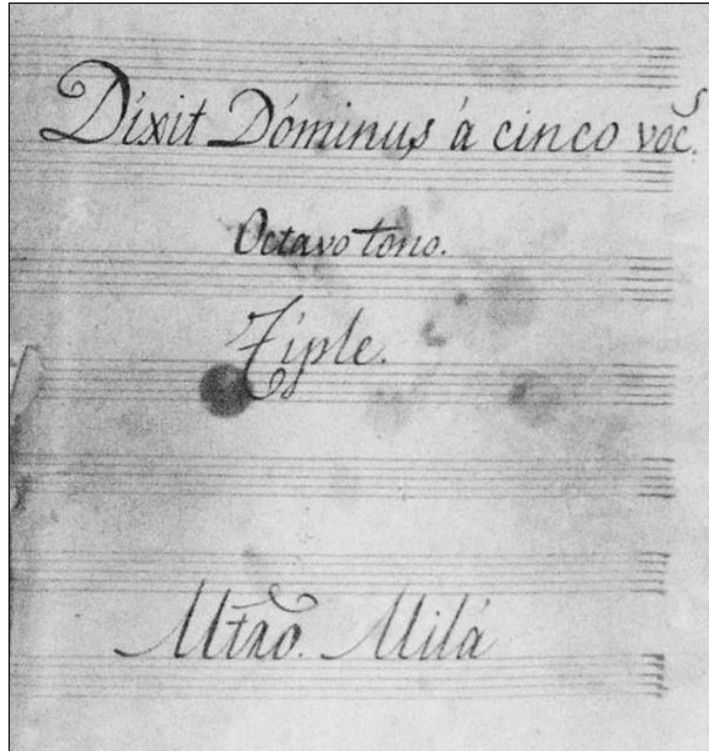 Díxit Dóminus á cinco voc̃.
Octavo tono.
Tiple.
Mtro. Milá